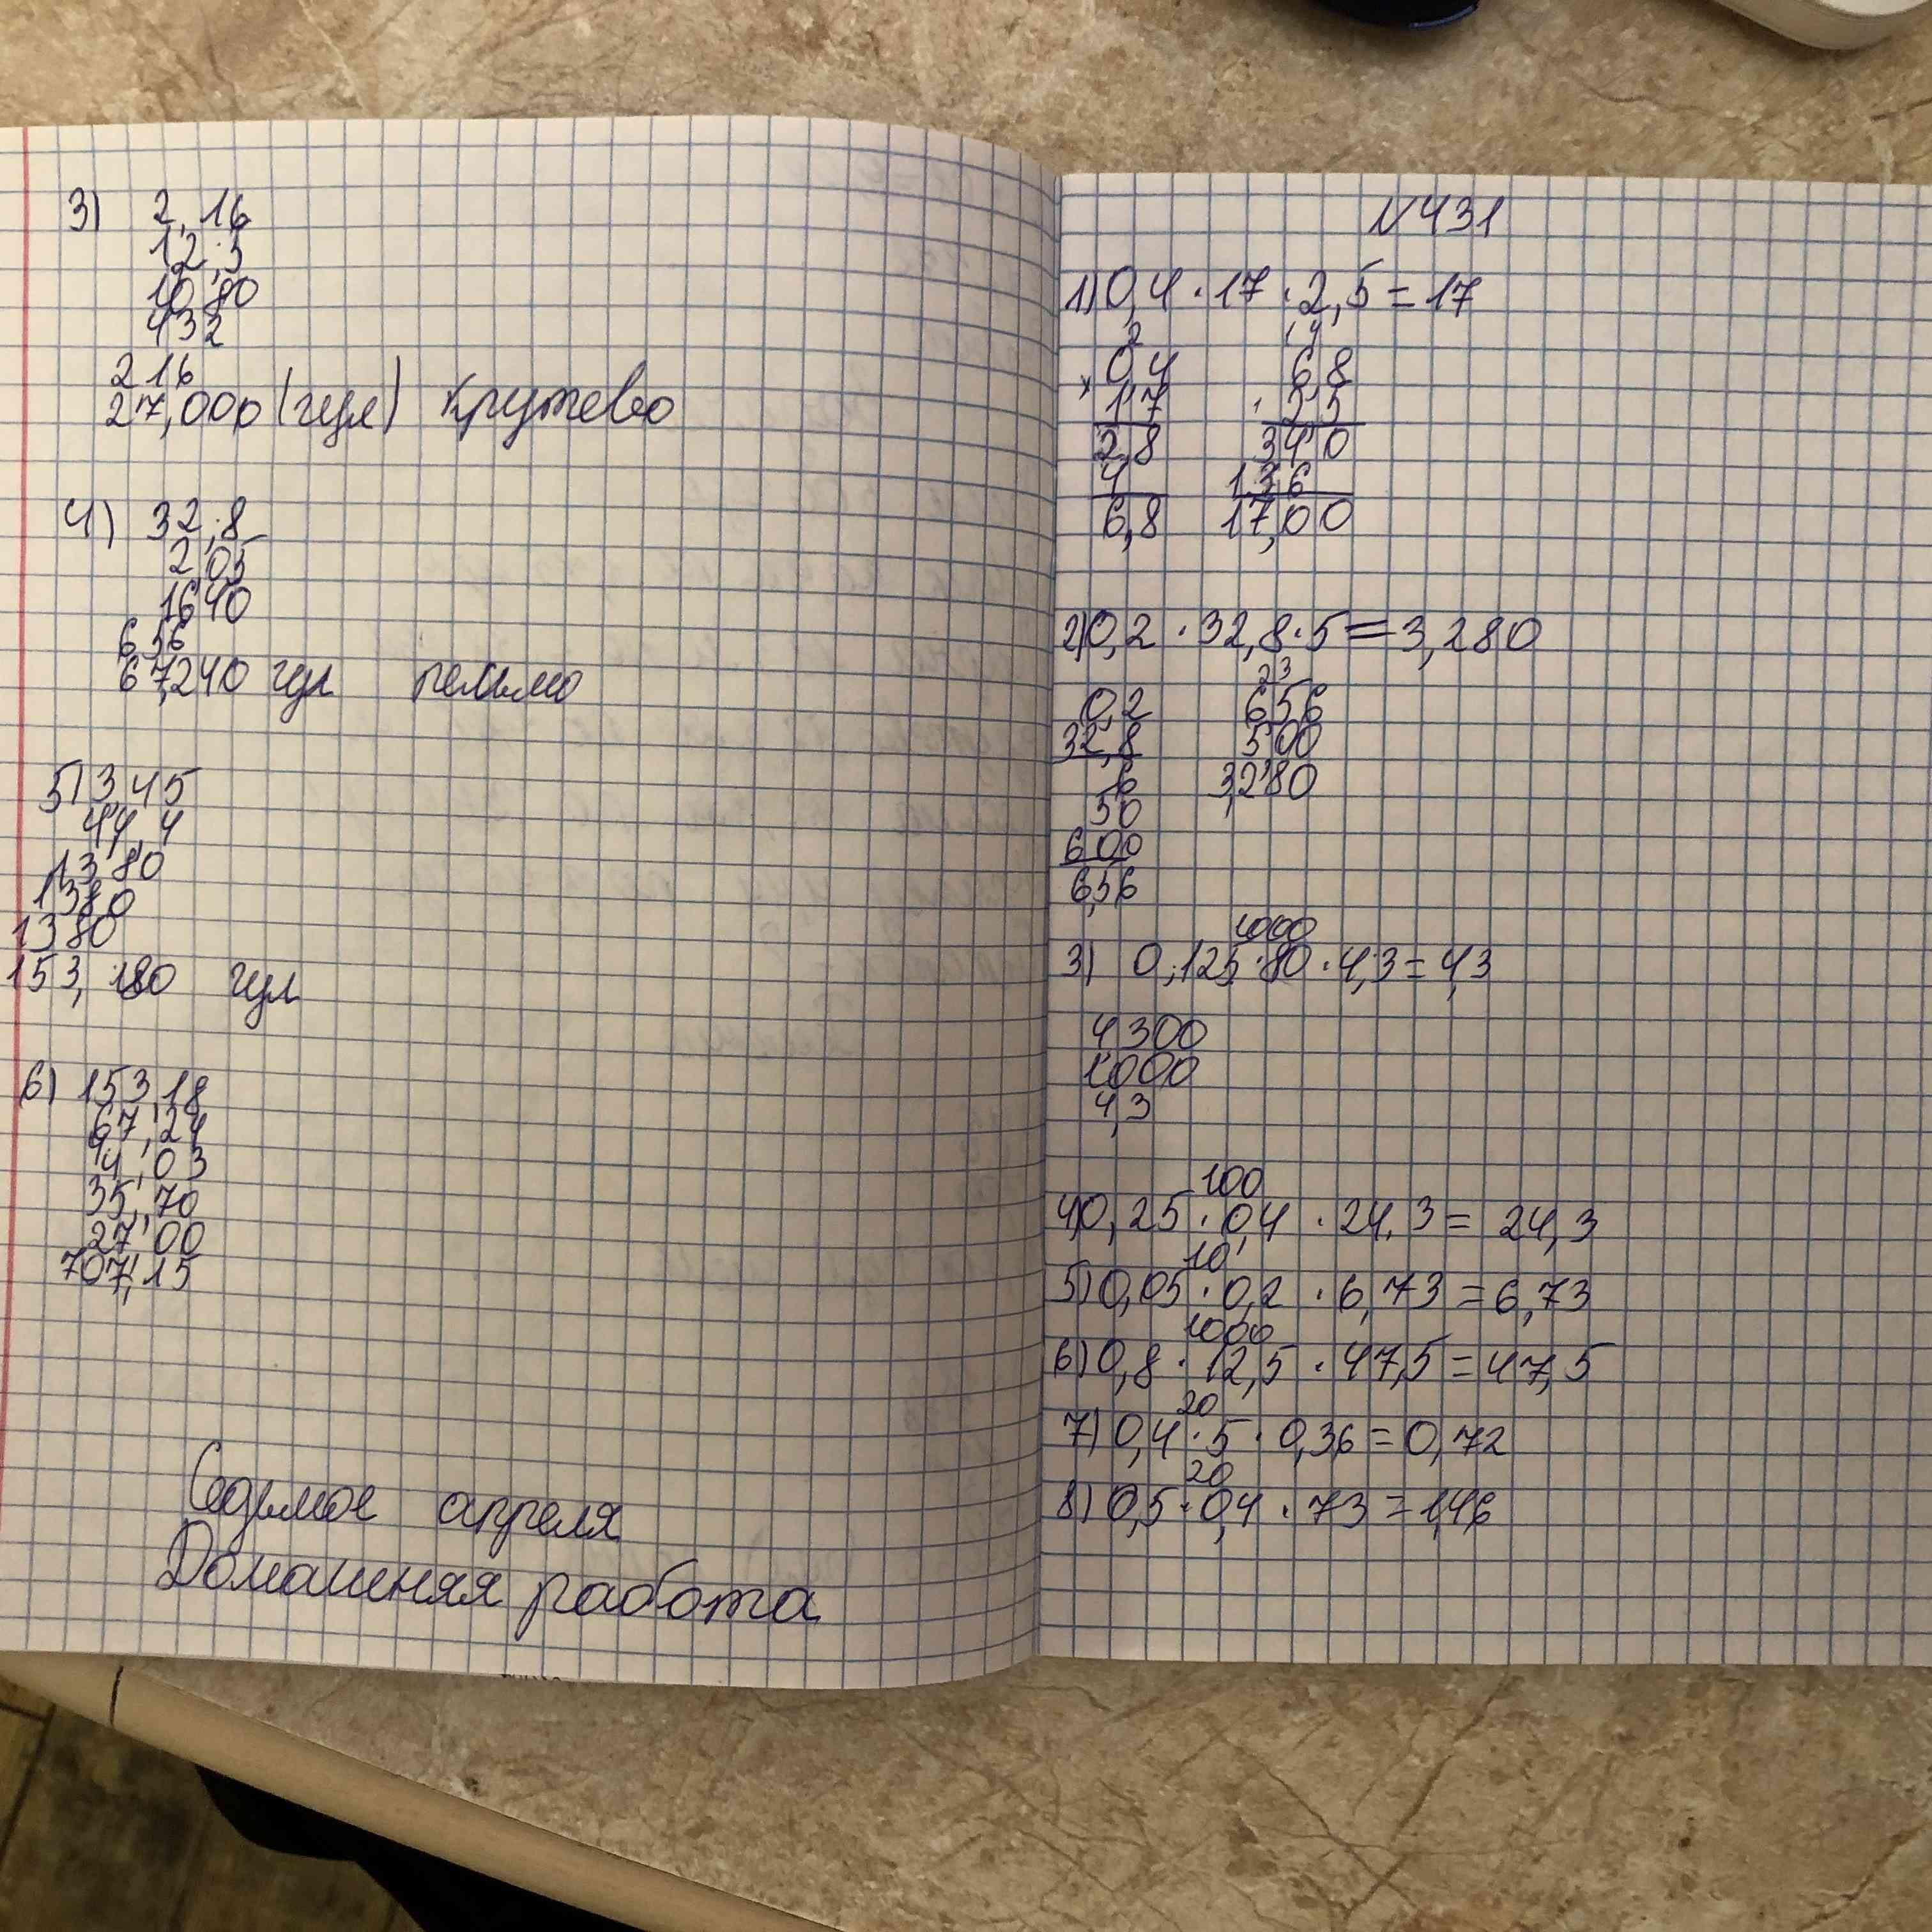 3) 2,16
12,5
10 80
432
216
27,000 (гул) кружево
4) 32,8
2,05
1640
656
67,240 гул
5) 3,45
44,4
1380
1380
1380
153, 180 гул
6) 153,18
67,24
35,70
27,00
707,15
Седьмое апреля
Домашняя работа
№431
1) 0,4 · 17 · 2,5 = 17
2 1 4
0,4 6,8
× 17 · 2,5
2,8 340
4 136
6,8 17,00
2) 0,2 · 32,8 · 5 = 3,280
2 3
0,2 656
32,8 500
6 3,280
50
600
6,56
1000
3) 0,125 · 80 · 4,3 = 4,3
4300
1000
4,3
100
4) 0,25 · 0,4 · 24,3 = 24,3
10
5) 0,05 · 0,2 · 6,73 = 6,73
1000
6) 0,8 · 12,5 · 47,5 = 47,5
20
7) 0,4 · 5 · 0,36 = 0,72
20
8) 0,5 · 0,4 · 73 = 1,46